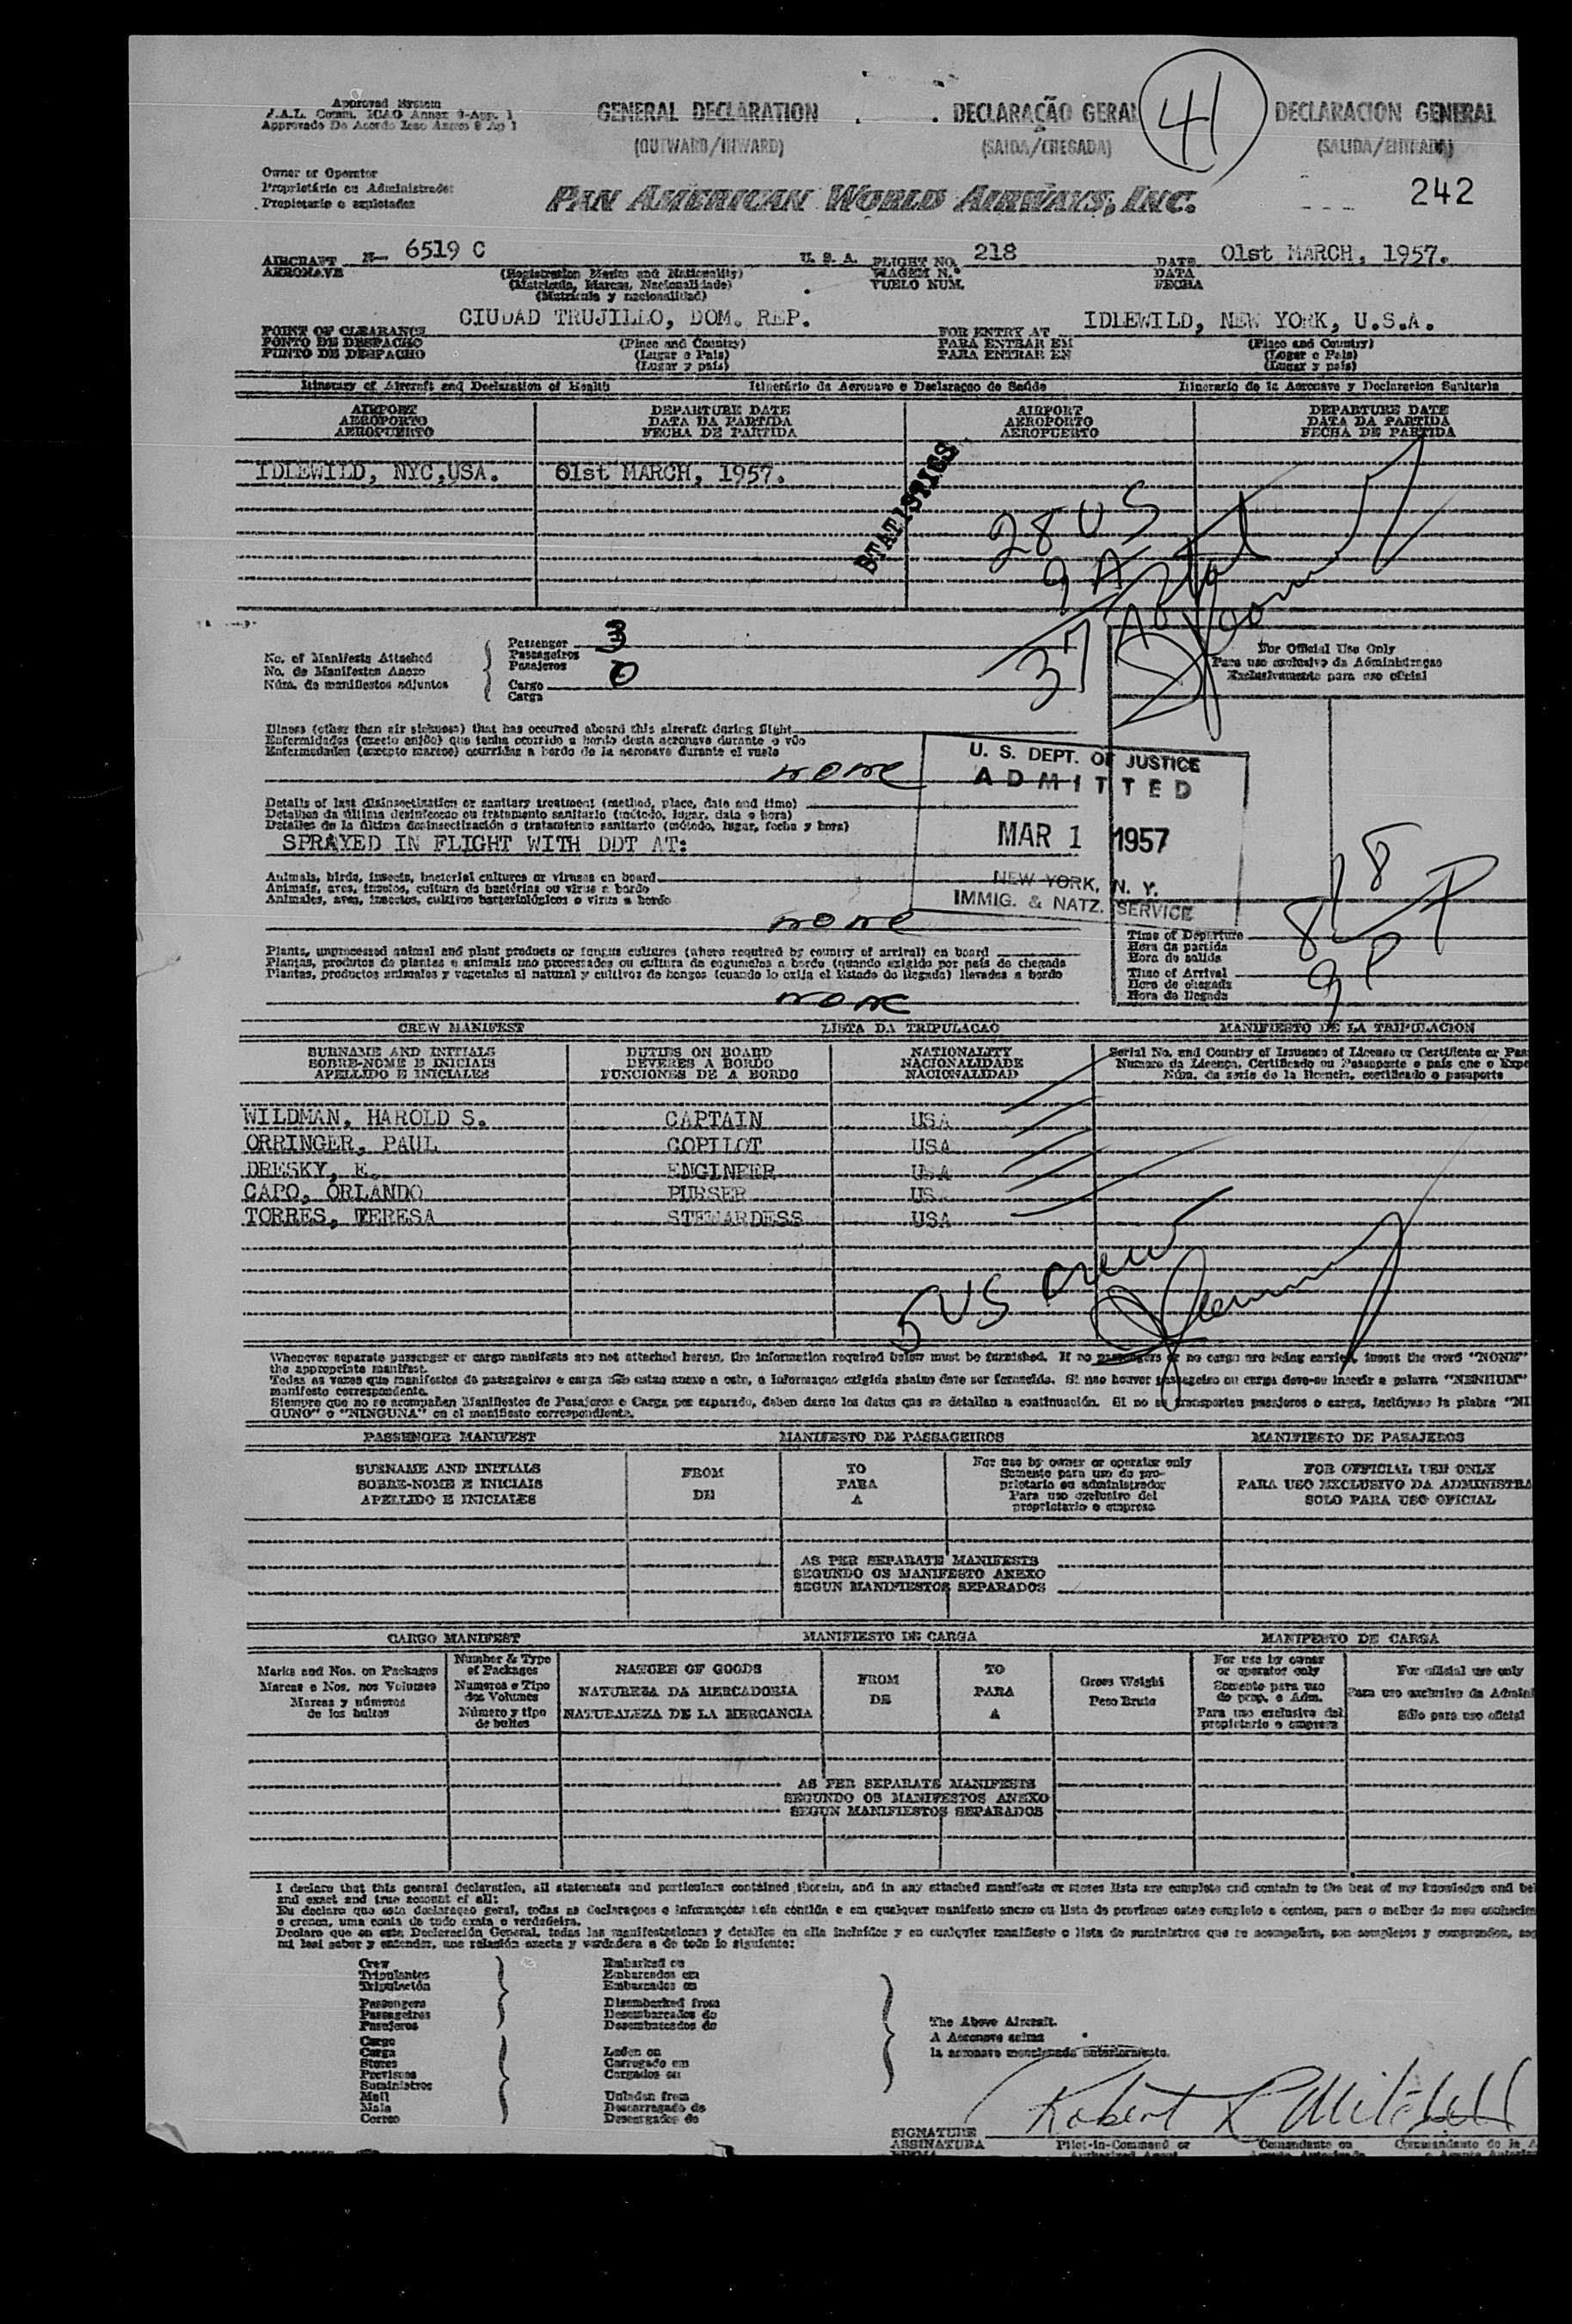 Approved System
F.A.L. Comm. ICAO Annex 9-App. 1
Approvado De Acordo Icao Anexo 9 Ap 1
GENERAL DECLARATION
(OUTWARD/INWARD)
DECLARAÇÃO GERAL
(SAIDA/CHEGADA)
41
DECLARACION GENERAL
(SALIDA/ENTRADA)
Owner or Operator
Proprietário ou Administrador
Propietario o explotador
PAN AMERICAN WORLD AIRWAYS, INC.
242
AIRCRAFT N- 6519 C U. S. A. FLIGHT NO. 218 DATE 01st MARCH, 1957.
AERONAVE (Registration Marks and Nationality) VIAGEM N.º DATA
(Matricula, Marcas, Nacionalidade) VUELO NUM. FECHA
(Matrícula y nacionalidad)
POINT OF CLEARANCE CIUDAD TRUJILLO, DOM. REP. FOR ENTRY AT IDLEWILD, NEW YORK, U.S.A.
PONTO DE DESPACHO (Place and Country) PARA ENTRAR EM (Place and Country)
PUNTO DE DESPACHO (Lugar e Pais) PARA ENTRAR EN (Lugar e Pais)
(Lugar y país) (Lugar y país)
Itinerary of Aircraft and Declaration of Health Itinerário da Aeronave e Declaraçao de Saúde Itinerario de la Aeronave y Declaracion Sanitaria
AIRPORT DEPARTURE DATE AIRPORT DEPARTURE DATE
AEROPORTO DATA DA PARTIDA AEROPORTO DATA DA PARTIDA
AEROPUERTO FECHA DE PARTIDA AEROPUERTO FECHA DE PARTIDA
IDLEWILD, NYC,USA. 01st MARCH, 1957.
STATISTICS
28 US
9 A
37
No. of Manifests Attached
No. de Manifestos Anexo
Núm. de manifiestos adjuntos
Passenger 3
Passageiros
Pasajeros
Cargo 0
Carga
For Official Use Only
Para uso exclusivo da Administraçao
Exclusivamente para uso oficial
Illness (other than air sickness) that has occurred aboard this aircraft during flight
Enfermidades (exceto enjôo) que tenha ocorrido a bordo desta aeronave durante o vôo
Enfermedades (excepto mareos) ocurridas a bordo de la aeronave durante el vuelo
none
U. S. DEPT. OF JUSTICE
ADMITTED
MAR 1 1957
NEW YORK, N. Y.
IMMIG. & NATZ. SERVICE
Details of last disinsectization or sanitary treatment (method, place, date and time)
Detalhes da última desinfeccao ou tratamento sanitario (método, lugar, data e hora)
Detalles de la última desinsectización o tratamiento sanitario (método, lugar, fecha y hora)
SPRAYED IN FLIGHT WITH DDT AT:
Animals, birds, insects, bacterial cultures or viruses on board
Animais, aves, insetos, cultura de bactérias ou virus a bordo
Animales, aves, insectos, cultivos bacteriológicos o virus a bordo
none
Plants, unprocessed animal and plant products or fungus cultures (where required by country of arrival) on board
Plantas, produtos de plantas e animais nao processados ou cultura de cogumelos a bordo (quando exigido por país de chegada
Plantas, productos animales y vegetales al natural y cultivos de hongos (cuando lo exija el Estado de llegada) llevados a bordo
none
Time of Departure
Hora da partida
Hora de salida
Time of Arrival 9 P
Hora de chegada
Hora de llegada
CREW MANIFEST LISTA DA TRIPULACAO MANIFIESTO DE LA TRIPULACION
SURNAME AND INITIALS DUTIES ON BOARD NATIONALITY Serial No. and Country of Issuance of License or Certificate or Pas
SOBRE-NOME E INICIAIS DEVERES A BORDO NACIONALIDADE Numero da Licença, Certificado ou Passaporte e pais que o Expe
APELLIDO E INICIALES FUNCIONES DE A BORDO NACIONALIDAD Núm. de serie de la licencia, certificado o pasaporte
WILDMAN, HAROLD S. CAPTAIN USA
ORRINGER, PAUL COPILOT USA
DRESKY, E. ENGINEER USA
CAPO, ORLANDO PURSER US
TORRES, TERESA STEWARDESS USA
5 US crew
Whenever separate passenger or cargo manifests are not attached hereto, the information required below must be furnished. If no passengers or no cargo are being carried, insert the word "NONE"
the appropriate manifest.
Todas as vezes que manifestos de passageiros e carga não estao anexo a este, a informaçao exigida abaixo deve ser fornecida. Si nao houver passageiro ou carga deve-se inserir a palavra "NENHUM"
manifesto correspondente.
Siempre que no se acompañen Manifiestos de Pasajeros o Carga por separado, deben darse los datos que se detallan a continuación. Si no se transporten pasajeros o carga, inclúyase la plabra "NI
GUNO" o "NINGUNA" en el manifiesto correspondiente.
PASSENGER MANIFEST MANIFESTO DE PASSAGEIROS MANIFIESTO DE PASAJEROS
SURNAME AND INITIALS FROM TO For use by owner or operator only FOR OFFICIAL USE ONLY
SOBRE-NOME E INICIAIS DE PARA Somente para uso do pro- PARA USO EXCLUSIVO DA ADMINISTRA
APELLIDO E INICIALES A prietario ou administrador SOLO PARA USO OFICIAL
Para uso exclusivo del
propietario o empresa
AS PER SEPARATE MANIFESTS
SEGUNDO OS MANIFESTO ANEXO
SEGUN MANIFIESTOS SEPARADOS
CARGO MANIFEST MANIFIESTO DE CARGA MANIFESTO DE CARGA
Marks and Nos. on Packages Number & Type of Packages NATURE OF GOODS FROM TO Gross Weight For use by owner or operator only For official use only
Marcas e Nos. nos Volumes Numeros e Tipo dos Volumes NATUREZA DA MERCADORIA DE PARA Peso Bruto Somente para uso do prop. e Adm. Para uso exclusivo da Admini
Marcas y números de los bultos Número y tipo de bultos NATURALEZA DE LA MERCANCIA A Para uso exclusivo del propietario o empresa Sólo para uso oficial
AS PER SEPARATE MANIFESTS
SEGUNDO OS MANIFESTOS ANEXO
SEGUN MANIFIESTOS SEPARADOS
I declare that this general declaration, all statements and particulars contained therein, and in any attached manifests or stores lists are complete and contain to the best of my knowledge and bel
and exact and true account of all:
Eu declaro que esta declaraçao geral, todas as declaraçoes e informaçoes nela contida e em qualquer manifesto anexo ou lista de provisoes estao completo e contem, para o melhor do meu conhecim
e crença, uma conta de todo exata e verdadeira.
Declaro que en esta Declaración General, todas las manifestaciones y detalles en ella incluídos y en cualquier manifiesto o lista de suministros que se acompañan, son completos y comprenden, seg
mi leal saber y entender, una relación exacta y verdadera de todo lo siguiente:
Crew Embarked on
Tripulantes Embarcados em
Tripulación Embarcados en
Passengers Disembarked from
Passageiros Desembarcados do
Pasajeros Desembarcados de
Cargo
Carga Laden on
Stores Carregado em
Provisoes Cargados en
Suministros
Mail Unladen from
Mala Descarregado de
Correo Descargados de
The Above Aircraft.
A Aeronave acima
la aeronave mencionada anteriormente.
Robert L Mitchell
SIGNATURE
ASSINATURA Pilot-in-Command or Comandante ou Commandante de la A